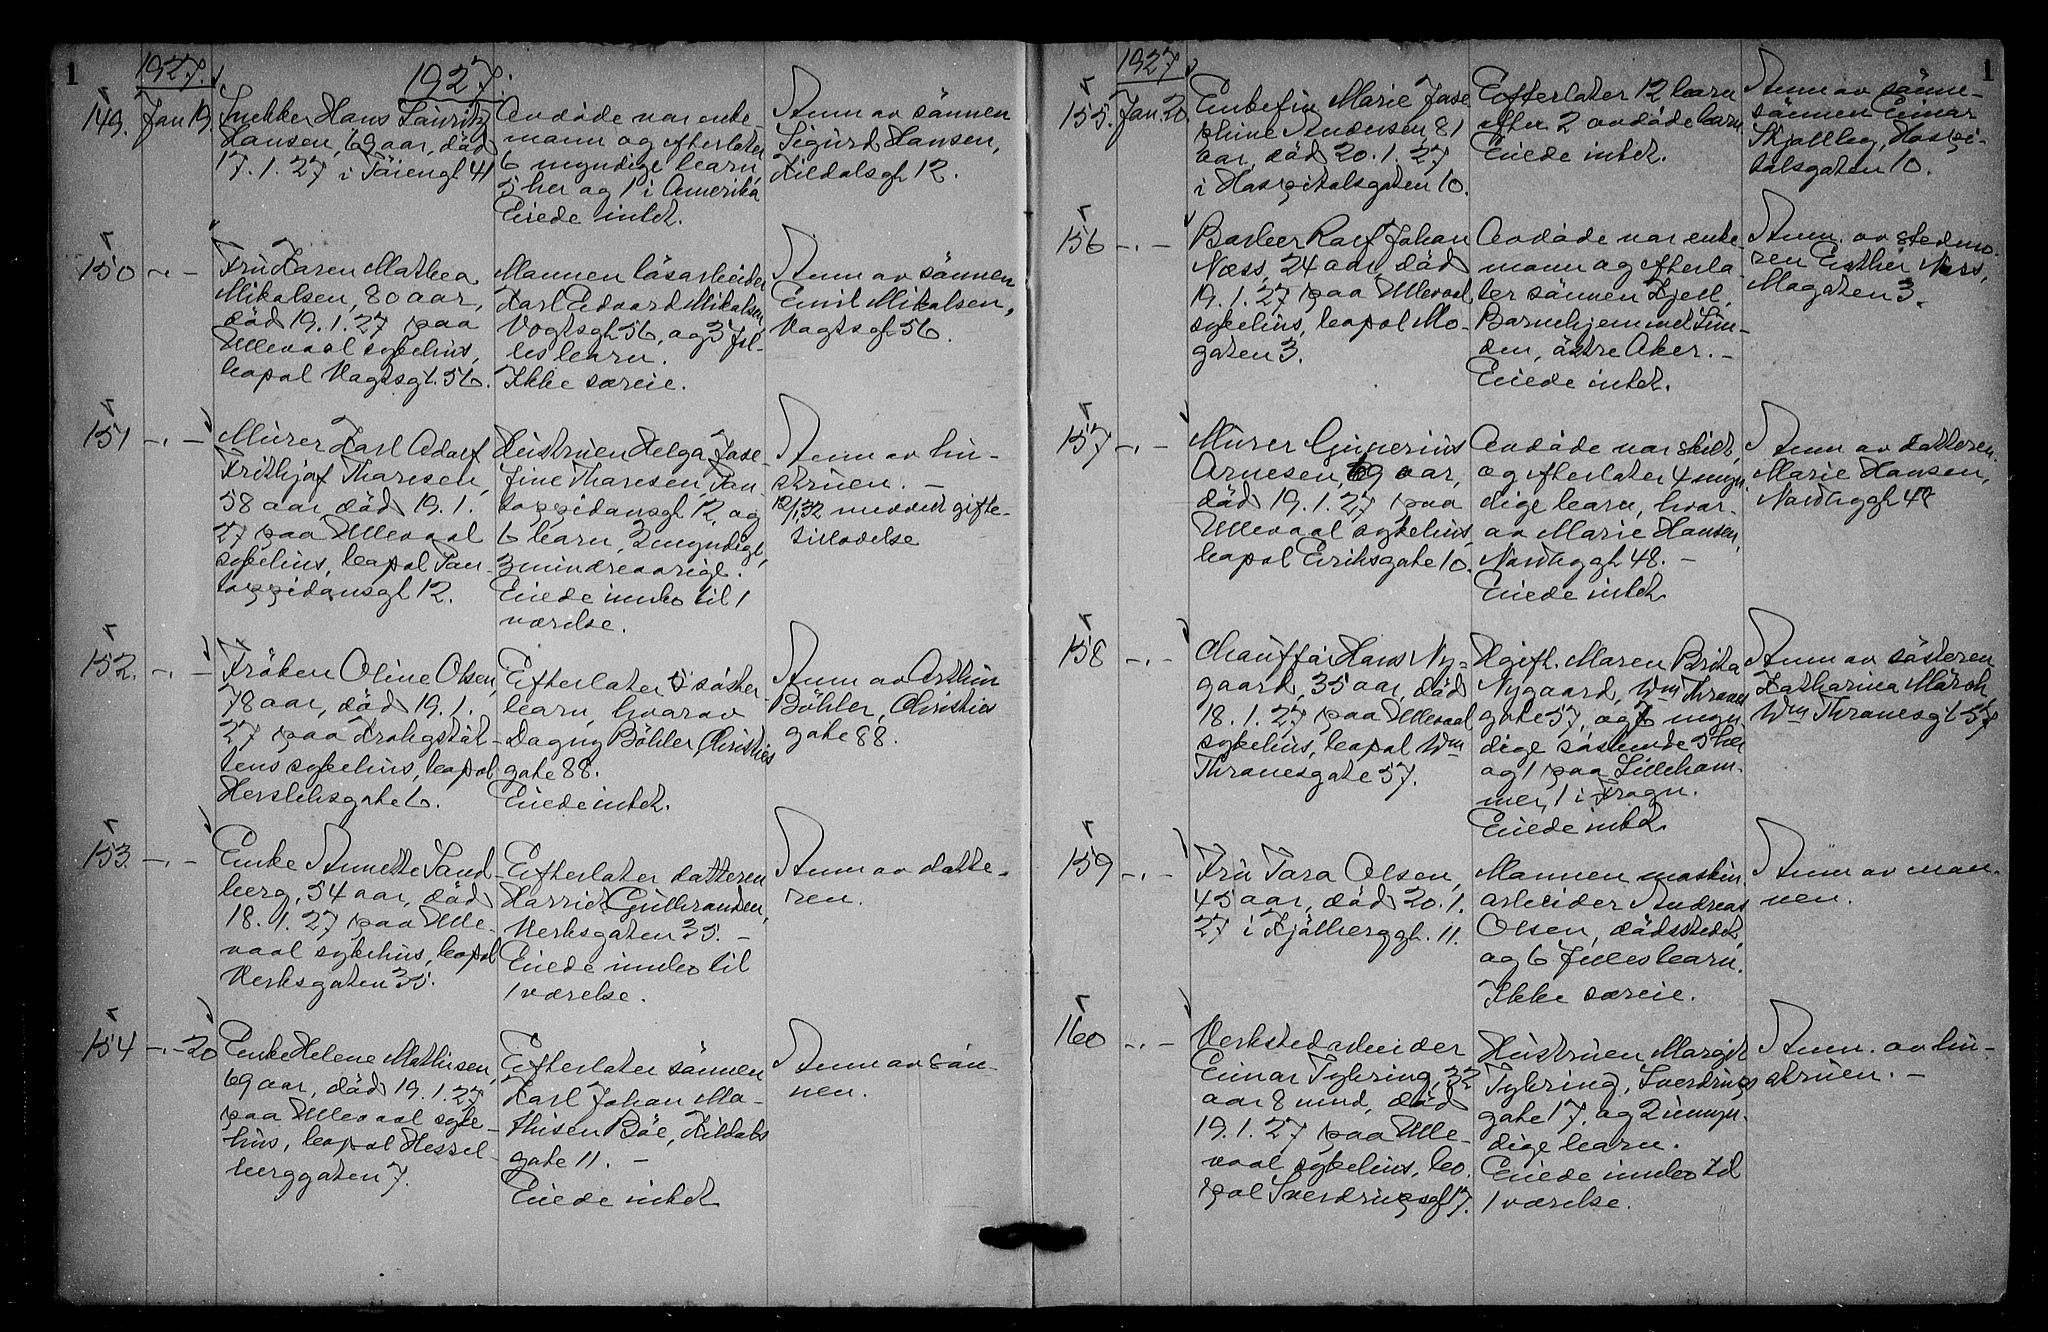 1
1927.
1927.
149.
Jan 19
Snekker Hans Lauritz
Hansen, 69 aar, död
17.1.27 i Töiengt 41
Avdöde var enke-
mann og efterlater
6 myndige barn,
5 her og 1 i Amerika
Eiede intet.
Anm av sönnen
Sigurd Hansen,
Kildalsgt 12.
150
-.-
Fru Karen Mathea
Mikalsen, 80 aar,
död 19.1.27 paa
Ullevaal sykehus,
bopæl Vogtsgt. 56.
Mannen lösarbeider
Karl Edvard Mikalsen
Vogtsgt 56, og 3 fel-
les barn.
Ikke særeie.
Anm av sönnen
Emil Mikalsen,
Vogtsgt 56.
151
-.-
Murer Karl Adolf
Frithjof Thoresen,
58 aar död 19.1.
27 paa Ullevaal
sykehus, bopæl Pon-
toppidansgt 12.
Hustruen Helga Jose-
fine Thoresen, Pon-
toppidansgt 12, og
6 barn, 3 myndige,
3 mindreaarige.
Eiede innbo til 1
værelse.
Anm av hu-
struen. -
12/1.32 meddelt gifte-
tilladelse
152.
-.-
Fröken Oline Olsen,
78 aar, död 19.1.
27 paa Krohgstöt-
tens sykehus, bopæl
Herslebsgate 6.
Efterlater 5 söster
barn, hvorav
Dagny Böhler Christies
gate 88.
Eiede intet.
Anm av Arthur
Böhler, Christies
gate 88.
153
-.-
Enke Annette Sand-
berg, 54 aar, död
18.1.27 paa Ulle-
vaal sykehus, bopæl
Verksgaten 35.
Efterlater datteren
Harriet Gulbrandsen,
Verksgaten 35. -
Eiede innbo til
1 værelse.
Anm av datte-
ren.
154
-.- 20
Enke Helene Mathisen,
69 aar, död 19.1.27
paa Ullevaal syke-
hus, bopæl Hessel-
berggaten 7.
Efterlater sönnen
Karl Johan Ma-
thisen Böe, Kildals
gate 11. -
Eiede intet
Anm av sön-
nen.
1
1927
155.
Jan. 20
Enkefru Marie Jose
phine Andersen 81
aar, död 20.1.27
i Hospitalsgaten 10.
Efterlater 12 barn
efter 2 avdöde barn.
Eiede intet.
Anm av sönne-
sönnen Einar
Skjolleg, Hospi-
talsgaten 10.
156
-.-
Barber Rolf Johan
Næss, 24 aar, död
19.1.27 paa Ullevaal
sykehus, bopæl Mo-
gaten 3.
Avdöde var enke-
mann og efterla-
ter sönnen Kjell.
Barnehjemmet Lin-
den, östre Aker. -
Eiede intet.
Anm. av stedmo-
ren Esther Næss,
Mogaten 3.
157
-.-
Murer Gunerius
Arnesen, 69 aar,
död 19.1.27 paa
Ullevaal sykehus,
bopæl Eriksgate 10.
Avdöde var skilt,
og efterlater 4 myn-
dige barn, hvor-
av Marie Hansen,
Nordbyggt 48. -
Eiede intet
Anm av datteren
Marie Hansen,
Nordbyggt 48
158
-.-
Chaufför Hans Ny-
gaard, 35 aar, död
18.1.27 paa Ullevaal
sykehus, bopæl Wm
Thranesgate 57.
Hgift. Maren Brita
Nygaard, Wm Thranes
gate 57, og 7 myn-
dige söskende 5 her
og 1 paa Lilleham-
mer, 1 i Frogn.
Eiede intet.
Anm av sösteren
Katharina Marsch,
Wm Thranesgt 57
159
-.-
Fru Tora Olsen,
45 aar, död 20.1.
27 i Kjölberggt. 11.
Mannen maskin-
arbeider Andreas
Olsen, dödsstedet,
og 6 felles barn.
Ikke særeie.
Anm av man-
nen.
160
-.-
Verkstedarbeider
Einar Tybring, 32
aar 8 mnd, död
19.1.27 paa Ulle-
vaal sykehus, bo-
pæl Sverdrupsgt 17.
Hustruen Margit
Tybring, Sverdrups
gate 17, og 2 umyn-
dige barn.
Eiede innbo til
1 værelse.
Anm. av hu-
struen. -